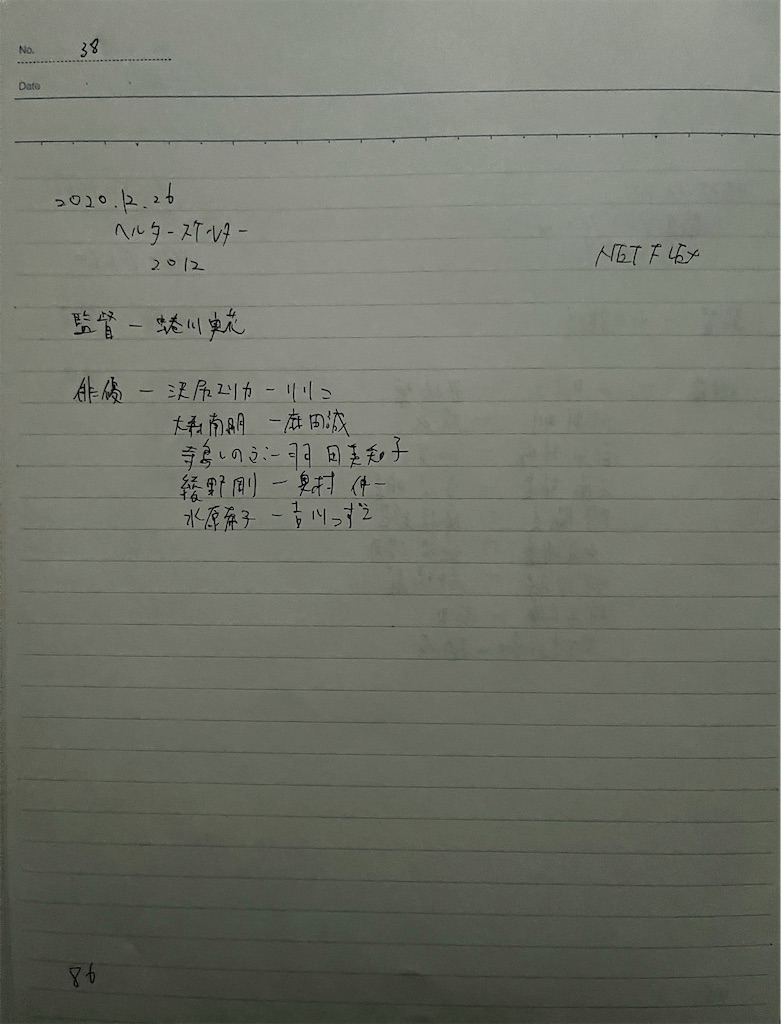 No. 38
Date
2020.12.26
ヘルタースケルター
2012
NETFLIX
監督 ー 蜷川実花
俳優 ー 沢尻エリカ ー りりこ
大森南朋 ー 麻田誠
寺島しのぶ ー 羽田美知子
綾野剛 ー 奥村伸一
水原希子 ー 吉川こずえ
86